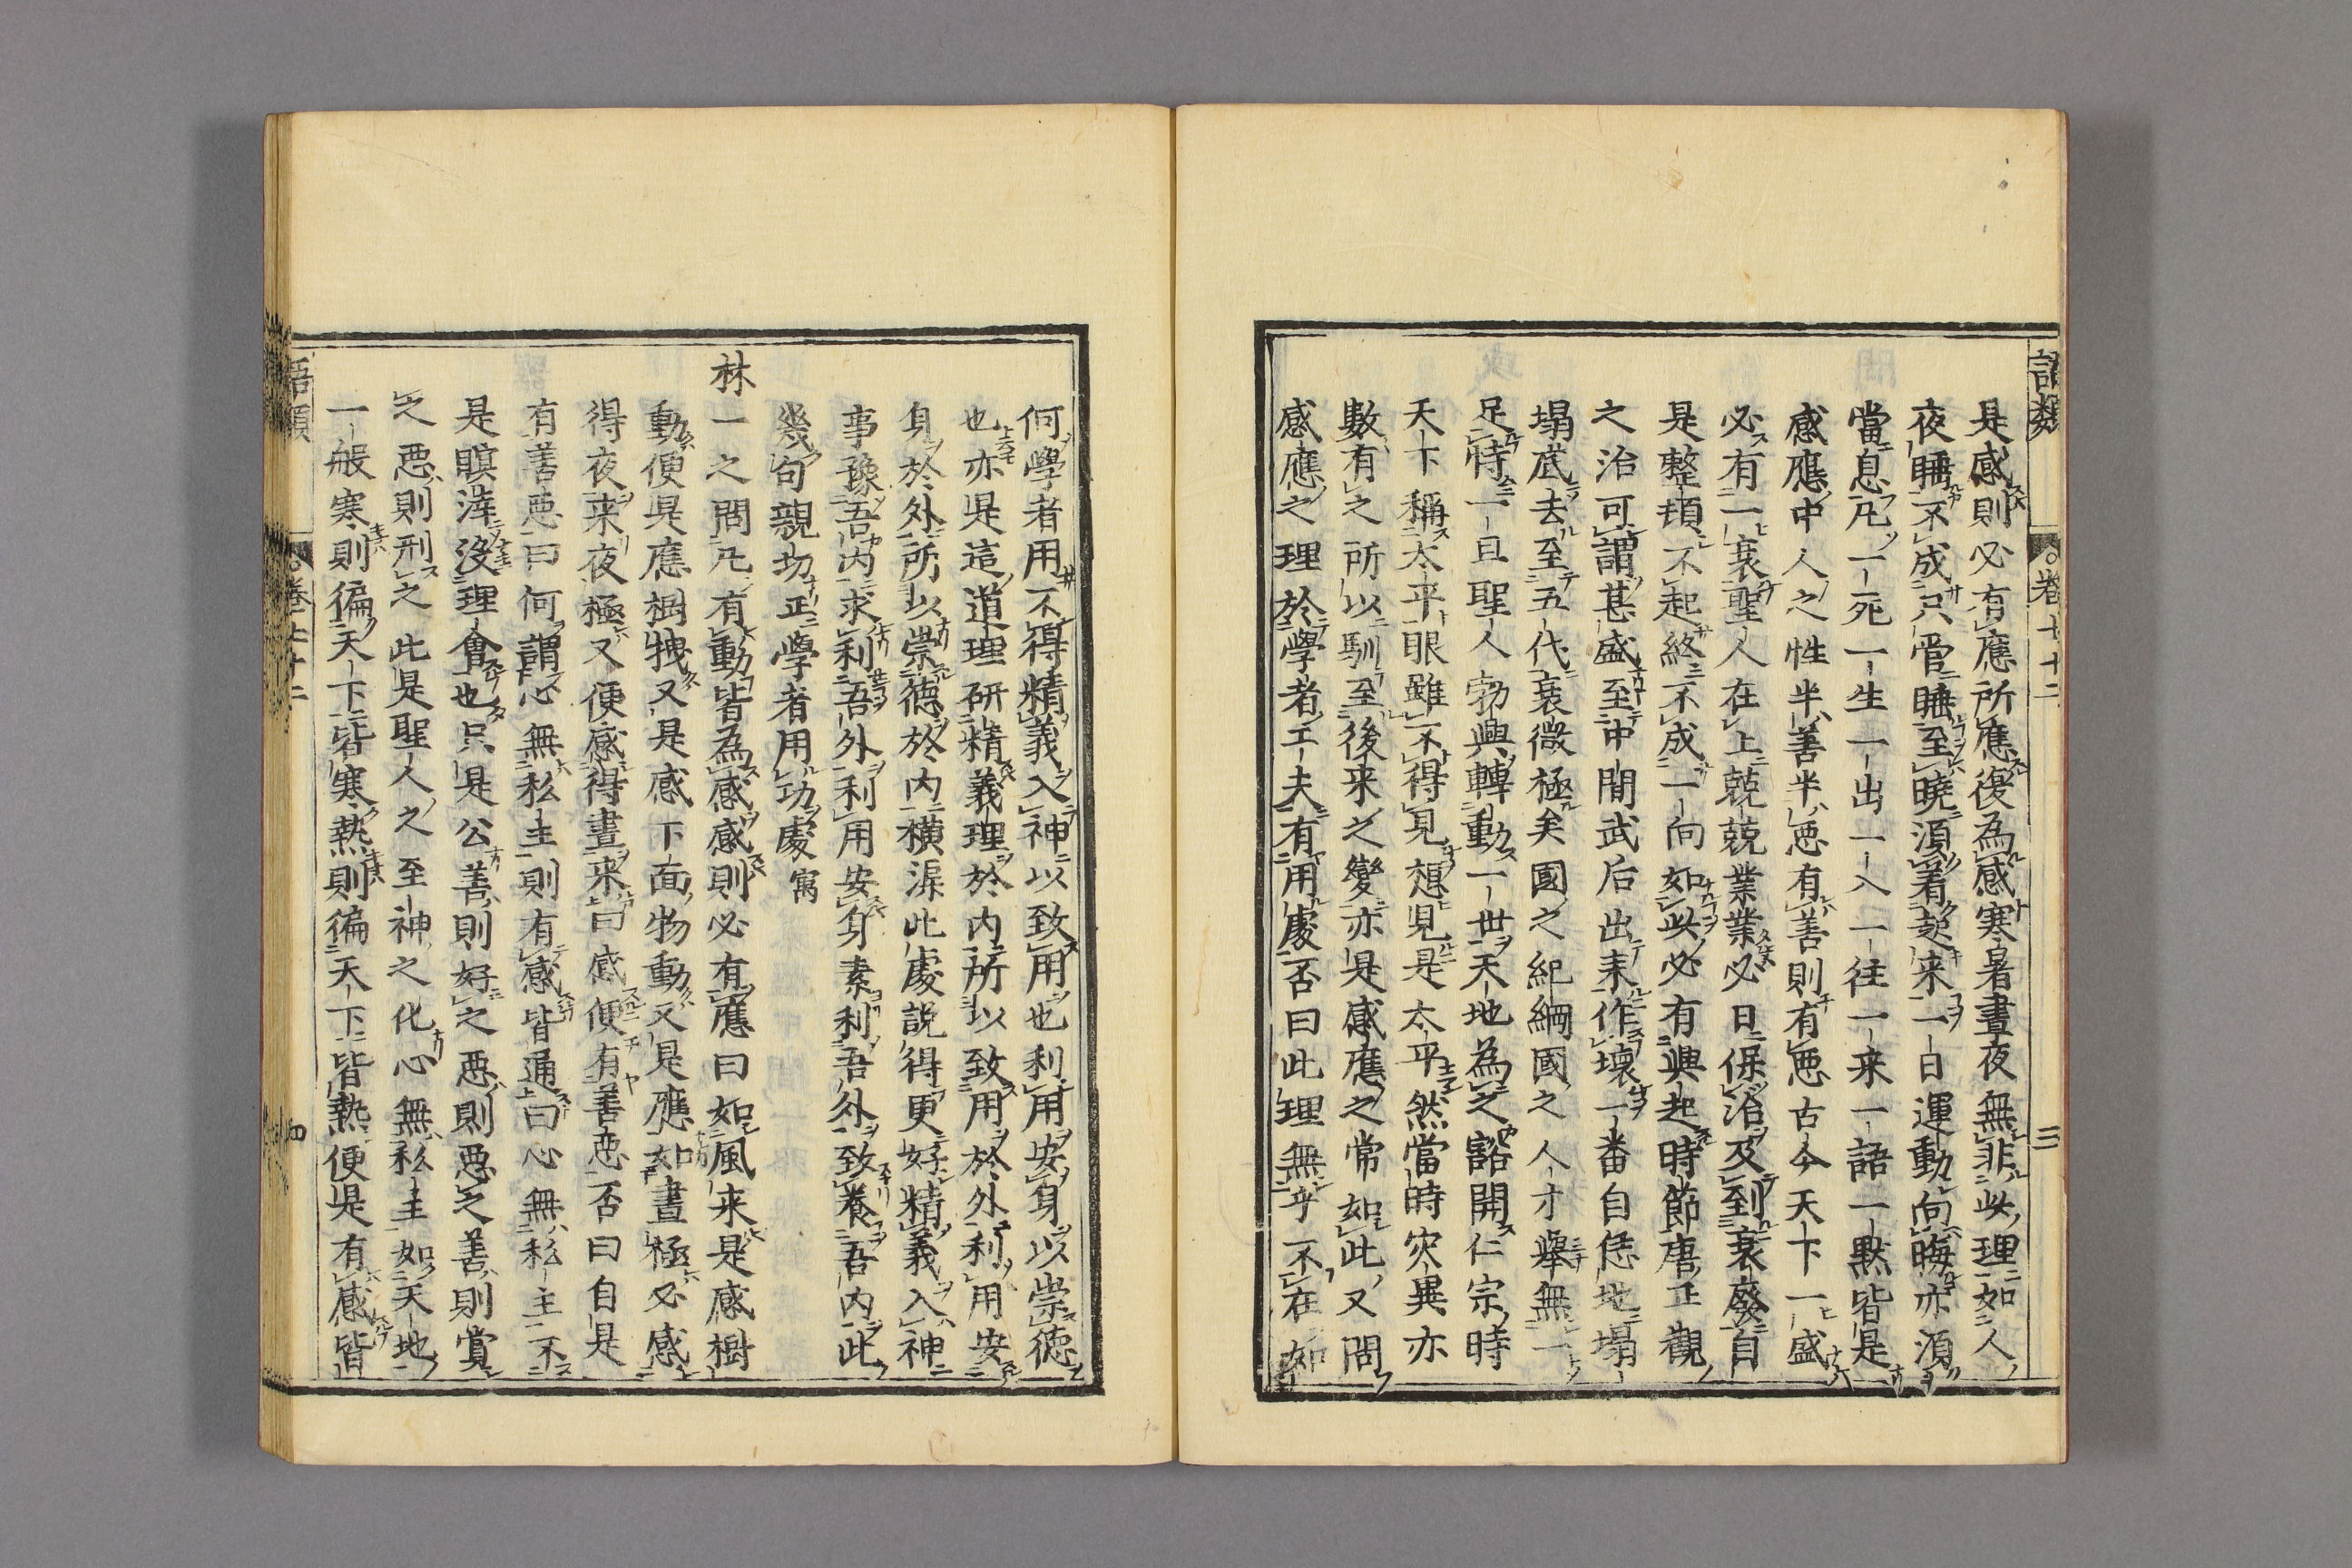 語類　卷七十二　三
是感則必有應所應復為感寒暑晝夜無非此理如人
夜睡不成只管睡至曉須著起来一日運動向晦亦須
當息凡一死一生一出一入一往一来一語一默皆是
感應中人之性半善半惡有善則有惡古今天下一盛
必有一衰聖人在上兢兢業業必日保治及到衰廢自
是整頓不起終不成一向如此必有興起時節唐正觀
之治可謂甚盛至中間武后出来作壞一番自恁地塌
塌底去至五代衰微極矣國之紀綱國之人才舉無一
足恃一旦聖人勃興轉動一世天地為之豁開仁宗時
天下稱太平眼雖不得見想見是太平然當時灾異亦
數有之所以馴至後来之變亦是感應之常如此又問
感應之理於學者工夫有用處否曰此理無乎不在如
何學者用不得精義入神以致用也利用安身以崇德
也亦是這道理研精義理於内所以致用於外利用安
身於外所以崇德於内横渠此處說得更好精義入神
事豫吾内求利吾外利用安身素利吾外致養吾内此
幾句親切正學者用功處㝢
林一之問凡有動皆為感感則必有應曰如風来是感樹
動便是應樹拽又是感下面物動又是應如晝極必感
得夜来夜極又便感得晝来曰感便有善惡否曰自是
有善惡曰何謂心無私主則有感皆通曰心無私主不
是瞑涬没理會也只是公善則好之惡則惡之善則賞
之惡則刑之此是聖人之至神之化心無私主如天地
一般寒則徧天下皆寒熱則徧天下皆熱便是有感皆
語類　卷七十二　四